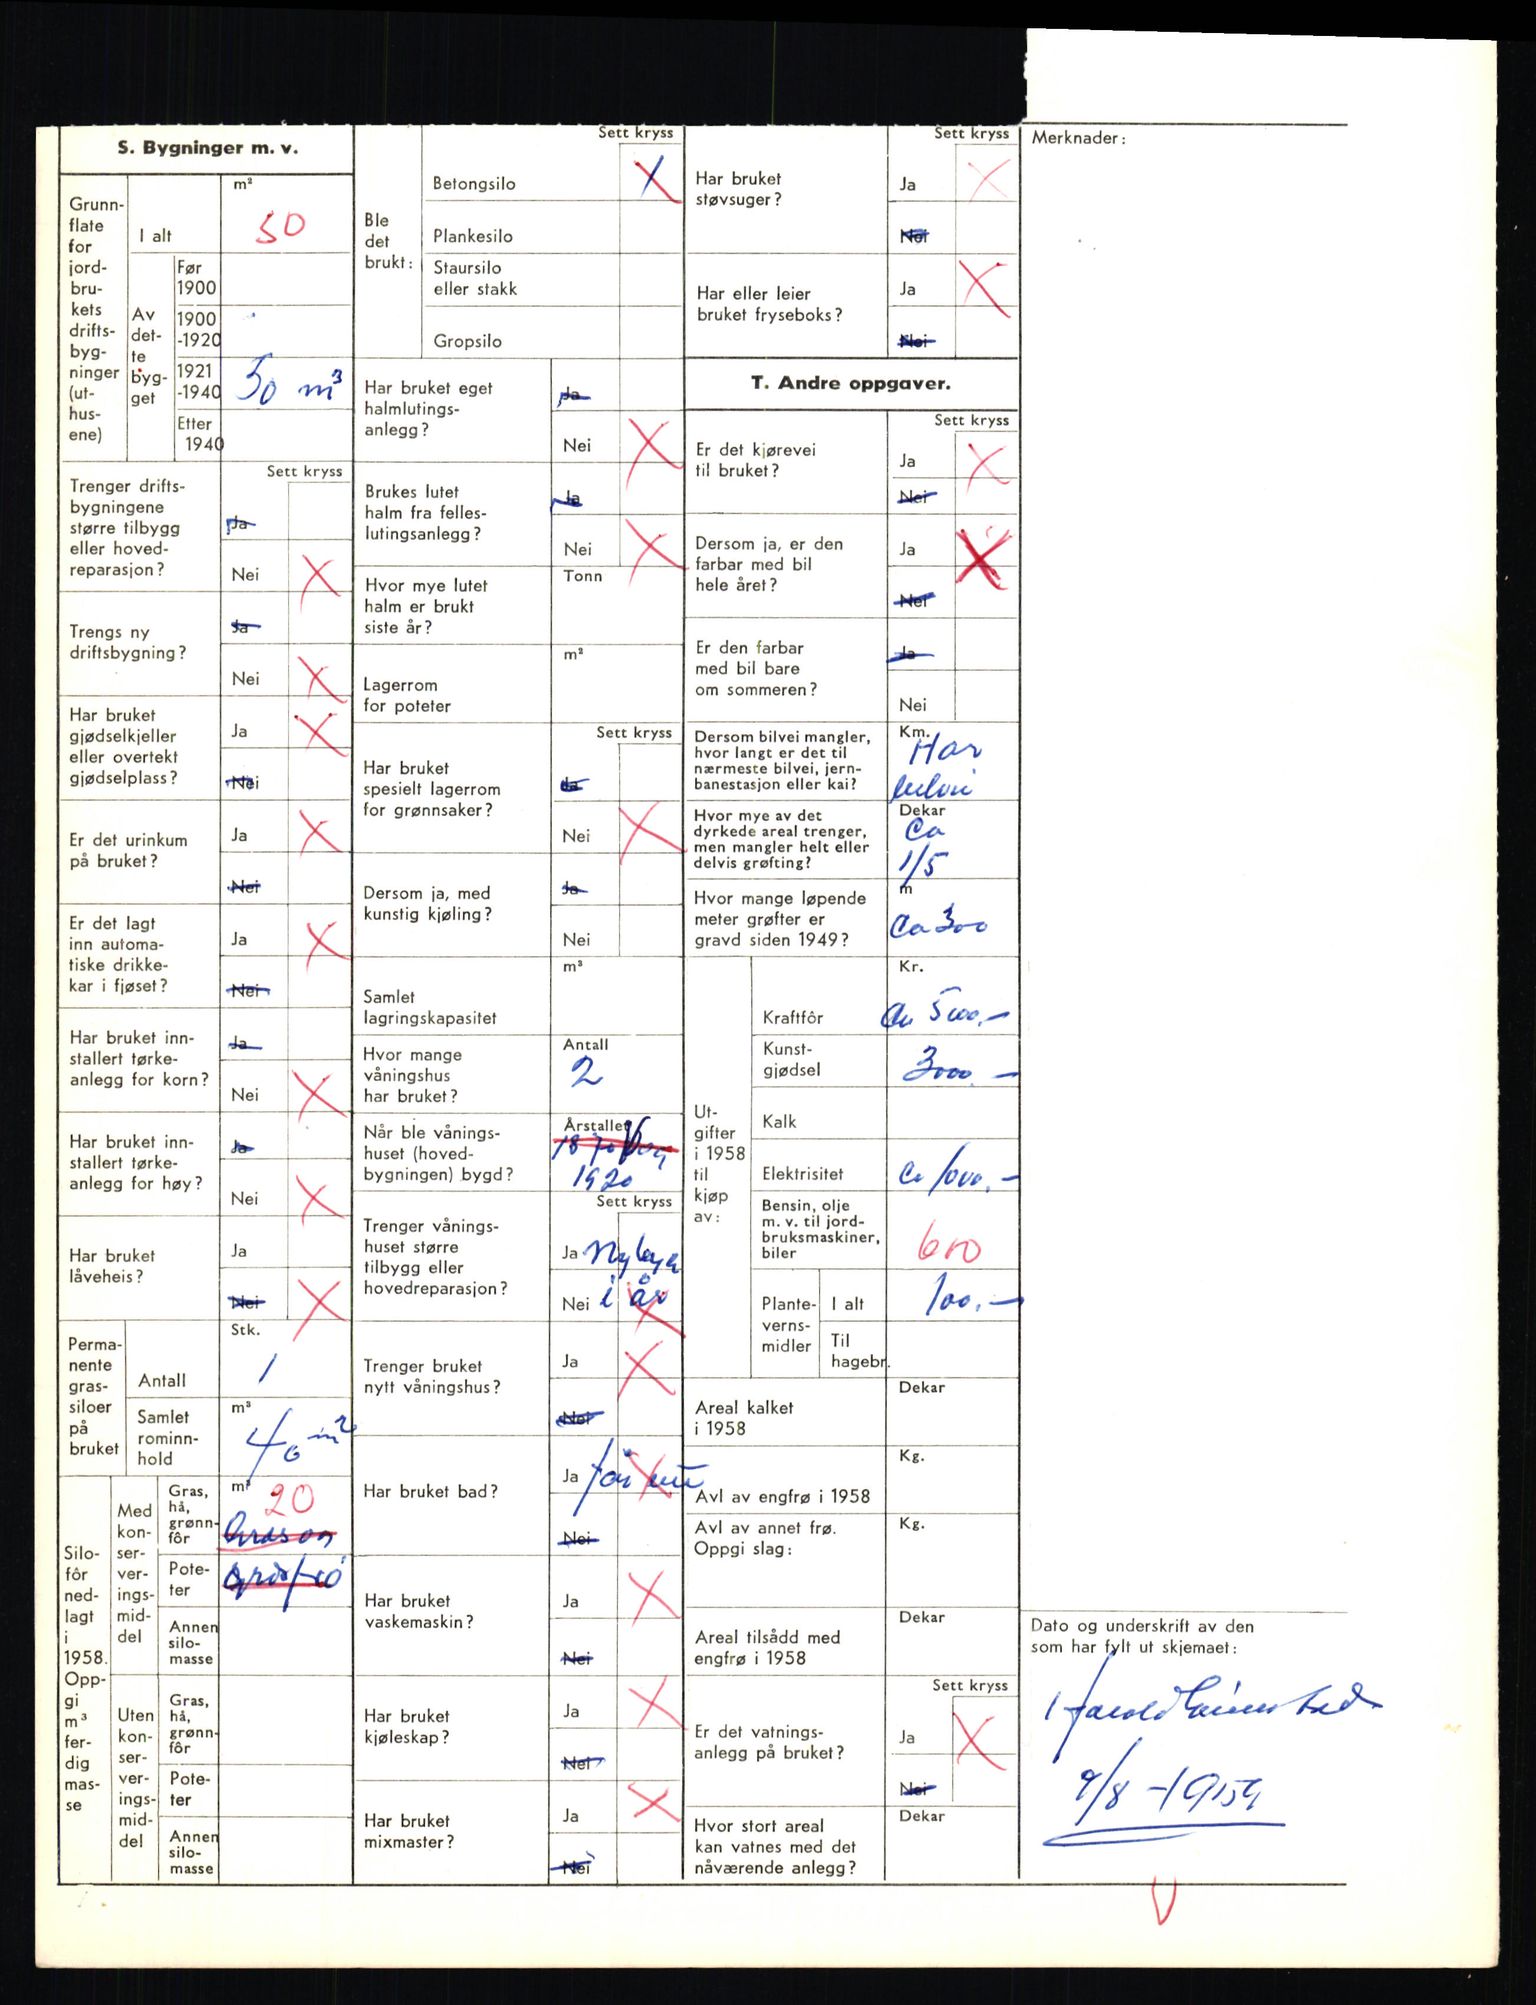 S. Bygninger m. v.
Grunn-
flate
for
jord-
bru-
kets
drifts-
byg-
ninger
(ut-
hus-
ene)
I alt
m²
50
Av
det-
te
byg-
get
Før
1900
1900
-1920
1921
-1940
50 m³
Etter
1940
Sett kryss
Trenger drifts-
bygningene
større tilbygg
eller hoved-
reparasjon?
Ja
Nei X
Trengs ny
driftsbygning?
Ja
Nei X
Har bruket
gjødselkjeller
eller overtekt
gjødselplass?
Ja X
Nei
Er det urinkum
på bruket?
Ja X
Nei
Er det lagt
inn automa-
tiske drikke-
kar i fjøset?
Ja X
Nei
Har bruket inn-
stallert tørke-
anlegg for korn?
Ja
Nei X
Har bruket inn-
stallert tørke-
anlegg for høy?
Ja
Nei X
Har bruket
låveheis?
Ja
Nei X
Perma-
nente
gras-
siloer
på
bruket
Antall
Stk.
1
Samlet
rominn-
hold
m³
40 m²
Silo-
fôr
ned-
lagt
i
1958.
Opp-
gi
m³
fer-
dig
mas-
se
Med
kon-
ser-
ver-
ings-
mid-
del
Gras,
hå,
grønn-
fôr
m³
20
Pote-
ter
Annen
silo-
masse
Uten
kon-
ser-
ver-
ings-
mid-
del
Gras,
hå,
grønn-
fôr
Pote-
ter
Annen
silo-
masse
Ble
det
brukt:
Sett kryss
Betongsilo X
Plankesilo
Staursilo
eller stakk
Gropsilo
Har bruket eget
halmlutings-
anlegg?
Ja
Nei X
Brukes lutet
halm fra felles-
lutingsanlegg?
Ja
Nei X
Hvor mye lutet
halm er brukt
siste år?
Tonn
Lagerrom
for poteter
m²
Sett kryss
Har bruket
spesielt lagerrom
for grønnsaker?
Ja
Nei X
Dersom ja, med
kunstig kjøling?
Ja
Nei
Samlet
lagringskapasitet
m³
Hvor mange
våningshus
har bruket?
Antall
2
Når ble vånings-
huset (hoved-
bygningen) bygd?
Årstallet
1870
1920
Sett kryss
Trenger vånings-
huset større
tilbygg eller
hovedreparasjon?
Ja Nybygg
Nei i år X
Trenger bruket
nytt våningshus?
Ja X
Nei
Har bruket bad?
Ja får ett X
Nei
Har bruket
vaskemaskin?
Ja X
Nei
Har bruket
kjøleskap?
Ja X
Nei
Har bruket
mixmaster?
Ja X
Nei
Sett kryss
Har bruket
støvsuger?
Ja X
Nei
Har eller leier
bruket fryseboks?
Ja X
Nei
T. Andre oppgaver.
Sett kryss
Er det kjørevei
til bruket?
Ja X
Nei
Dersom ja, er den
farbar med bil
hele året?
Ja X
Nei
Er den farbar
med bil bare
om sommeren?
Ja
Nei
Dersom bilvei mangler,
hvor langt er det til
nærmeste bilvei, jern-
banestasjon eller kai?
Km.
Har
bilvei
Hvor mye av det
dyrkede areal trenger,
men mangler helt eller
delvis grøfting?
Dekar
Ca
1/5
Hvor mange løpende
meter grøfter er
gravd siden 1949?
m
Ca 300
Ut-
gifter
i 1958
til
kjøp
av:
Kr.
Kraftfôr
Ca 5000.-
Kunst-
gjødsel
3000.-
Kalk
Elektrisitet
Ca 1000.-
Bensin, olje
m. v. til jord-
bruksmaskiner,
biler
600
Plante-
verns-
midler
I alt
100.-
Til
hagebr.
Areal kalket
i 1958
Dekar
Avl av engfrø i 1958
Kg.
Avl av annet frø.
Oppgi slag:
Kg.
Areal tilsådd med
engfrø i 1958
Dekar
Sett kryss
Er det vatnings-
anlegg på bruket?
Ja X
Nei
Hvor stort areal
kan vatnes med det
nåværende anlegg?
Dekar
Merknader:
Dato og underskrift av den
som har fylt ut skjemaet:
Harald
9/8 - 1959